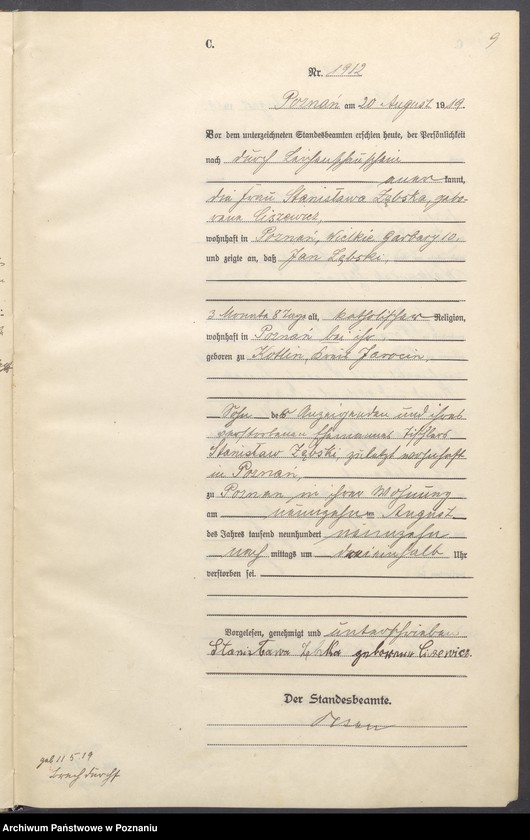 C.
9
Nr. 1912
Poznań am 20 August 1919.
Vor dem unterzeichneten Standesbeamten erschien heute, der Persönlichkeit
nach durch Leichenschauschein
aner kannt,
die Frau Stanisława Ząbska, gebo-
rene Ciszewicz,
wohnhaft in Poznań, Wielkie Garbary 10.
und zeigte an, daß Jan Ząbski,
3 Monate 8 Tage alt, katholischer Religion,
wohnhaft in Poznań bei ihr,
geboren zu Kotlin, Kreis Jarocin,
Sohn der Anzeigenden und ihres
verstorbenen Ehemannes Tischlers
Stanisław Ząbski, zuletzt wohnhaft
in Poznań,
zu Poznań in ihrer Wohnung
am neunzehn en August
des Jahres tausend neunhundert neunzehn
nach mittags um Uhr
verstorben sei.
Vorgelesen, genehmigt und unterschrieben
Stanisława Ząbska geborene Ciszewicz.
Der Standesbeamte.
geb 11 5. 19
Brechdurchf
Archiwum Państwowe w Poznaniu